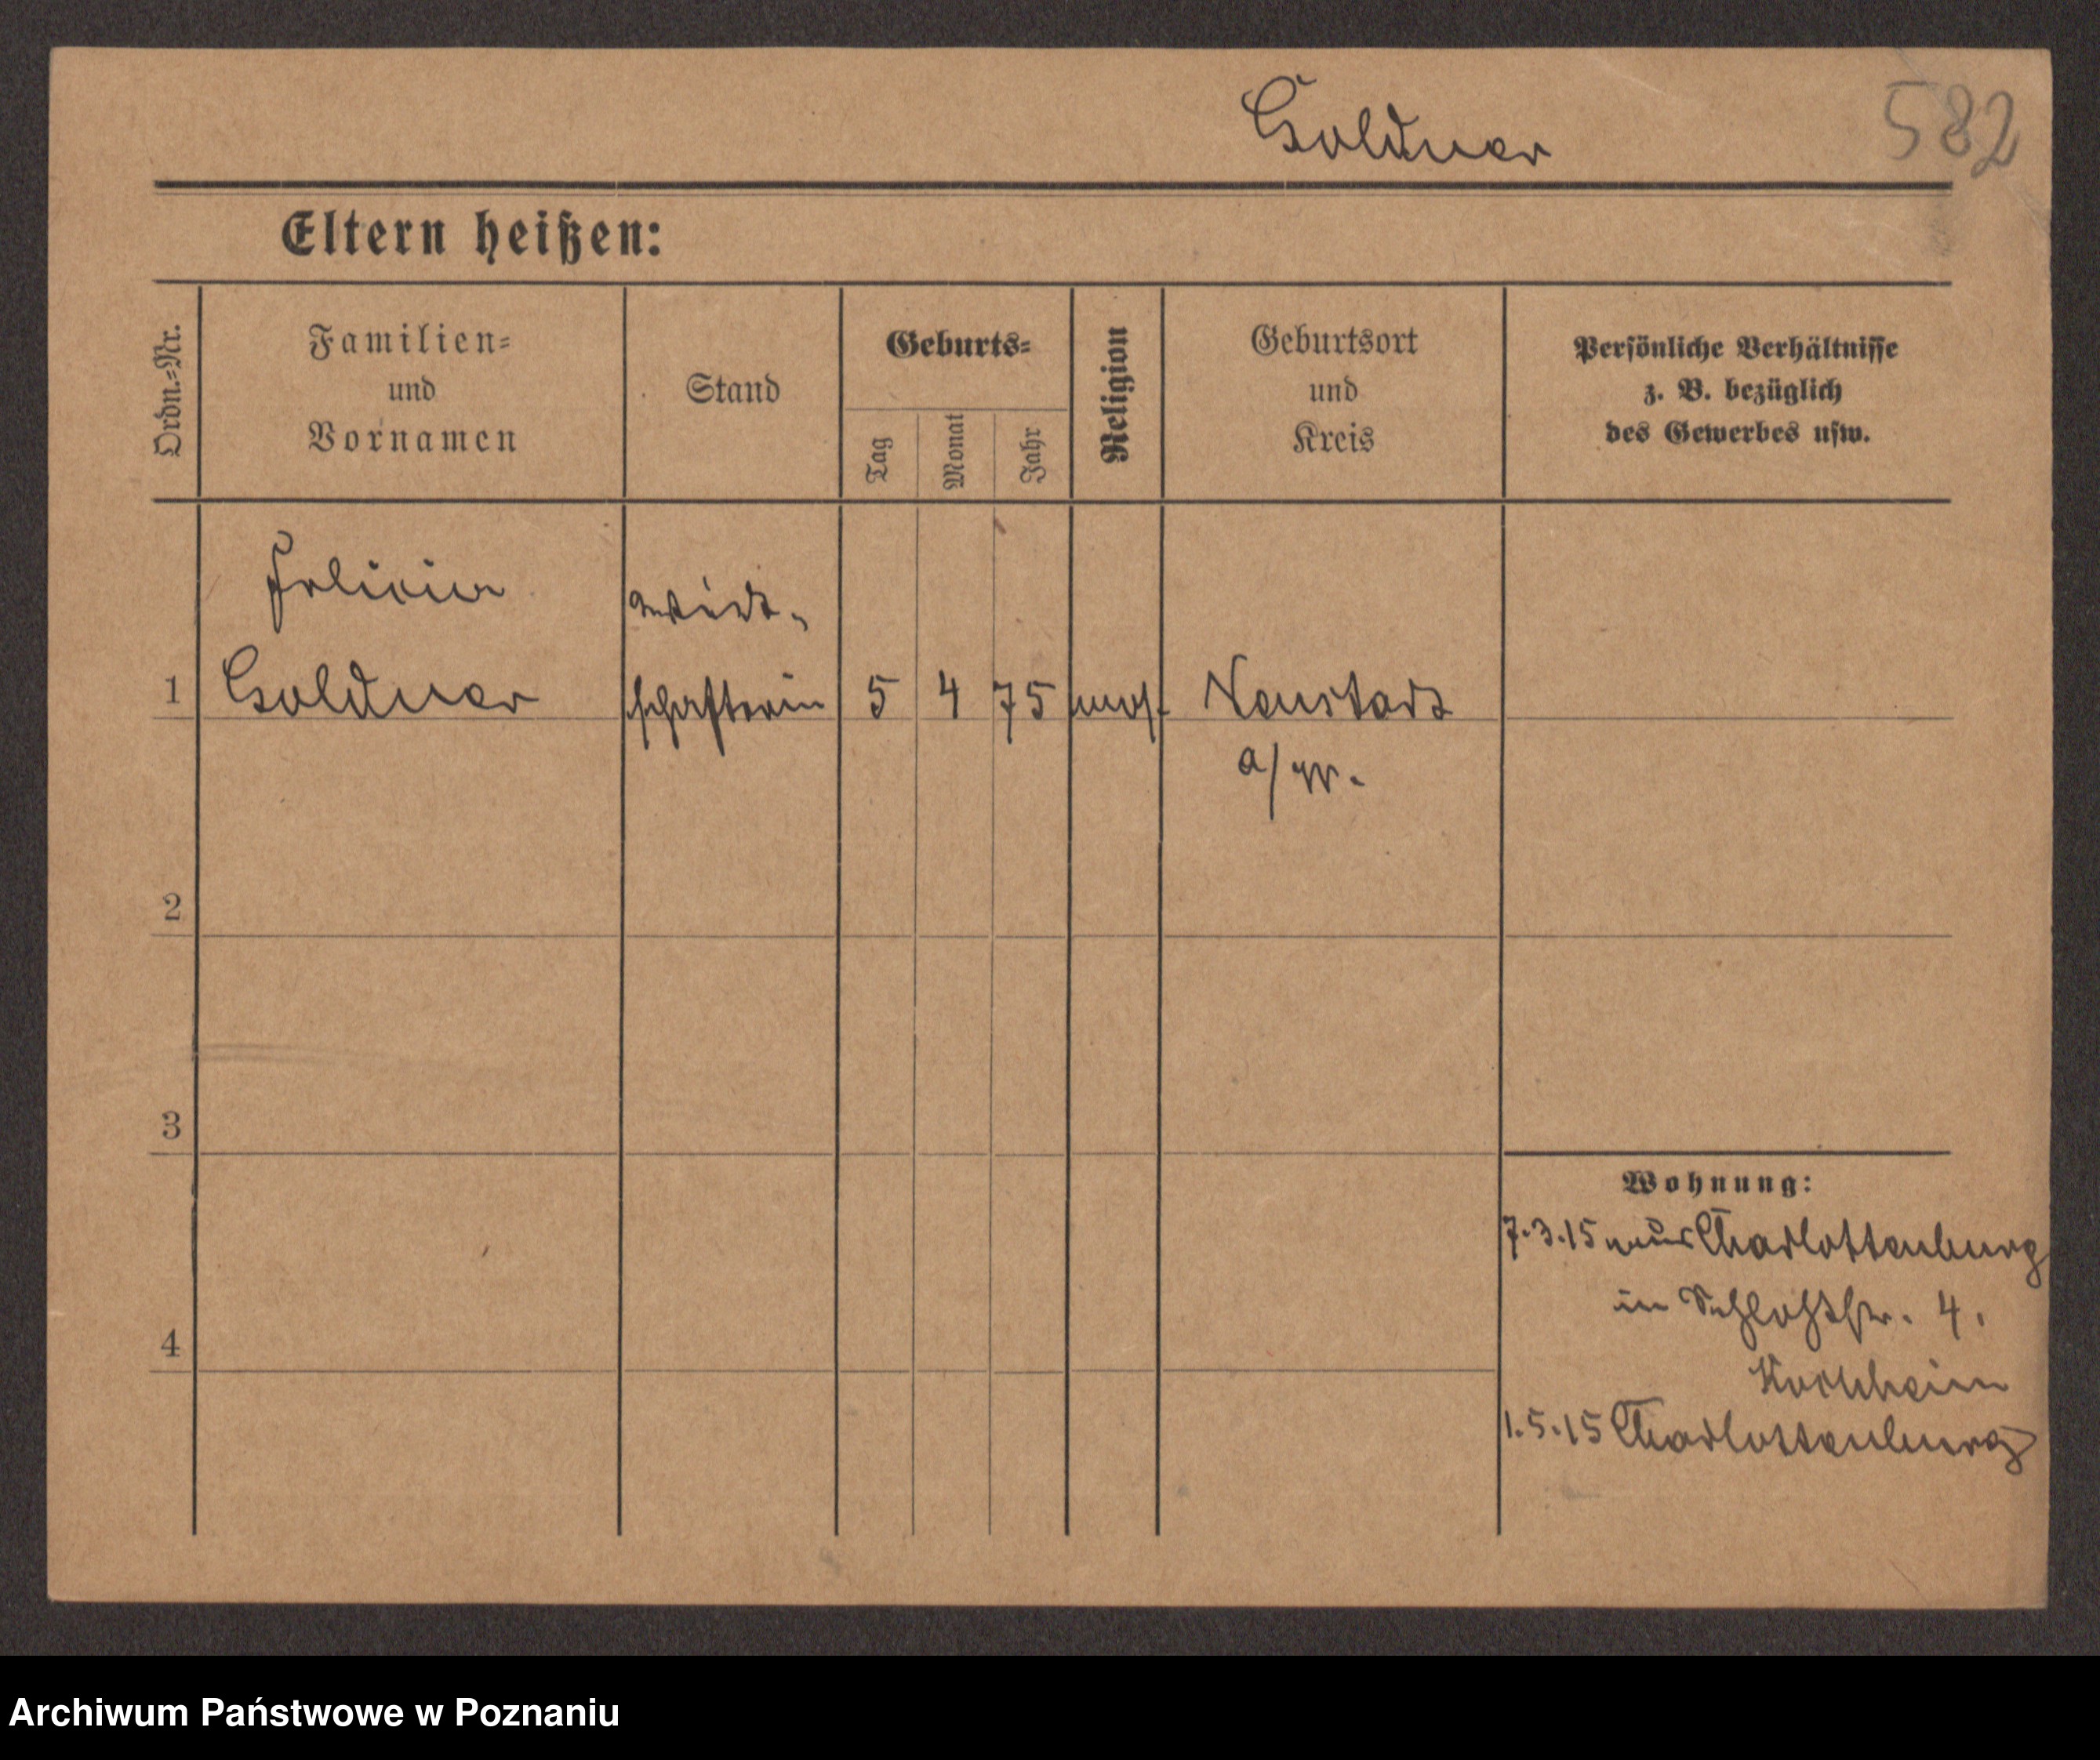 Goldner
582
Eltern heißen:
Ordn.-Nr.
Familien-
und
Vornamen
Stand
Geburts-
Tag
Monat
Jahr
Religion
Geburtsort
und
Kreis
Persönliche Verhältnisse
z. B. bezüglich
des Gewerbes usw.
1
Goldner
schafterin
5
4
75
mos.
Neustadt
a/W.
2
3
4
Wohnung:
7.3.15 aus Charlottenburg
in Schloßstr. 4.
1.5.15 Charlottenburg
Archiwum Państwowe w Poznaniu